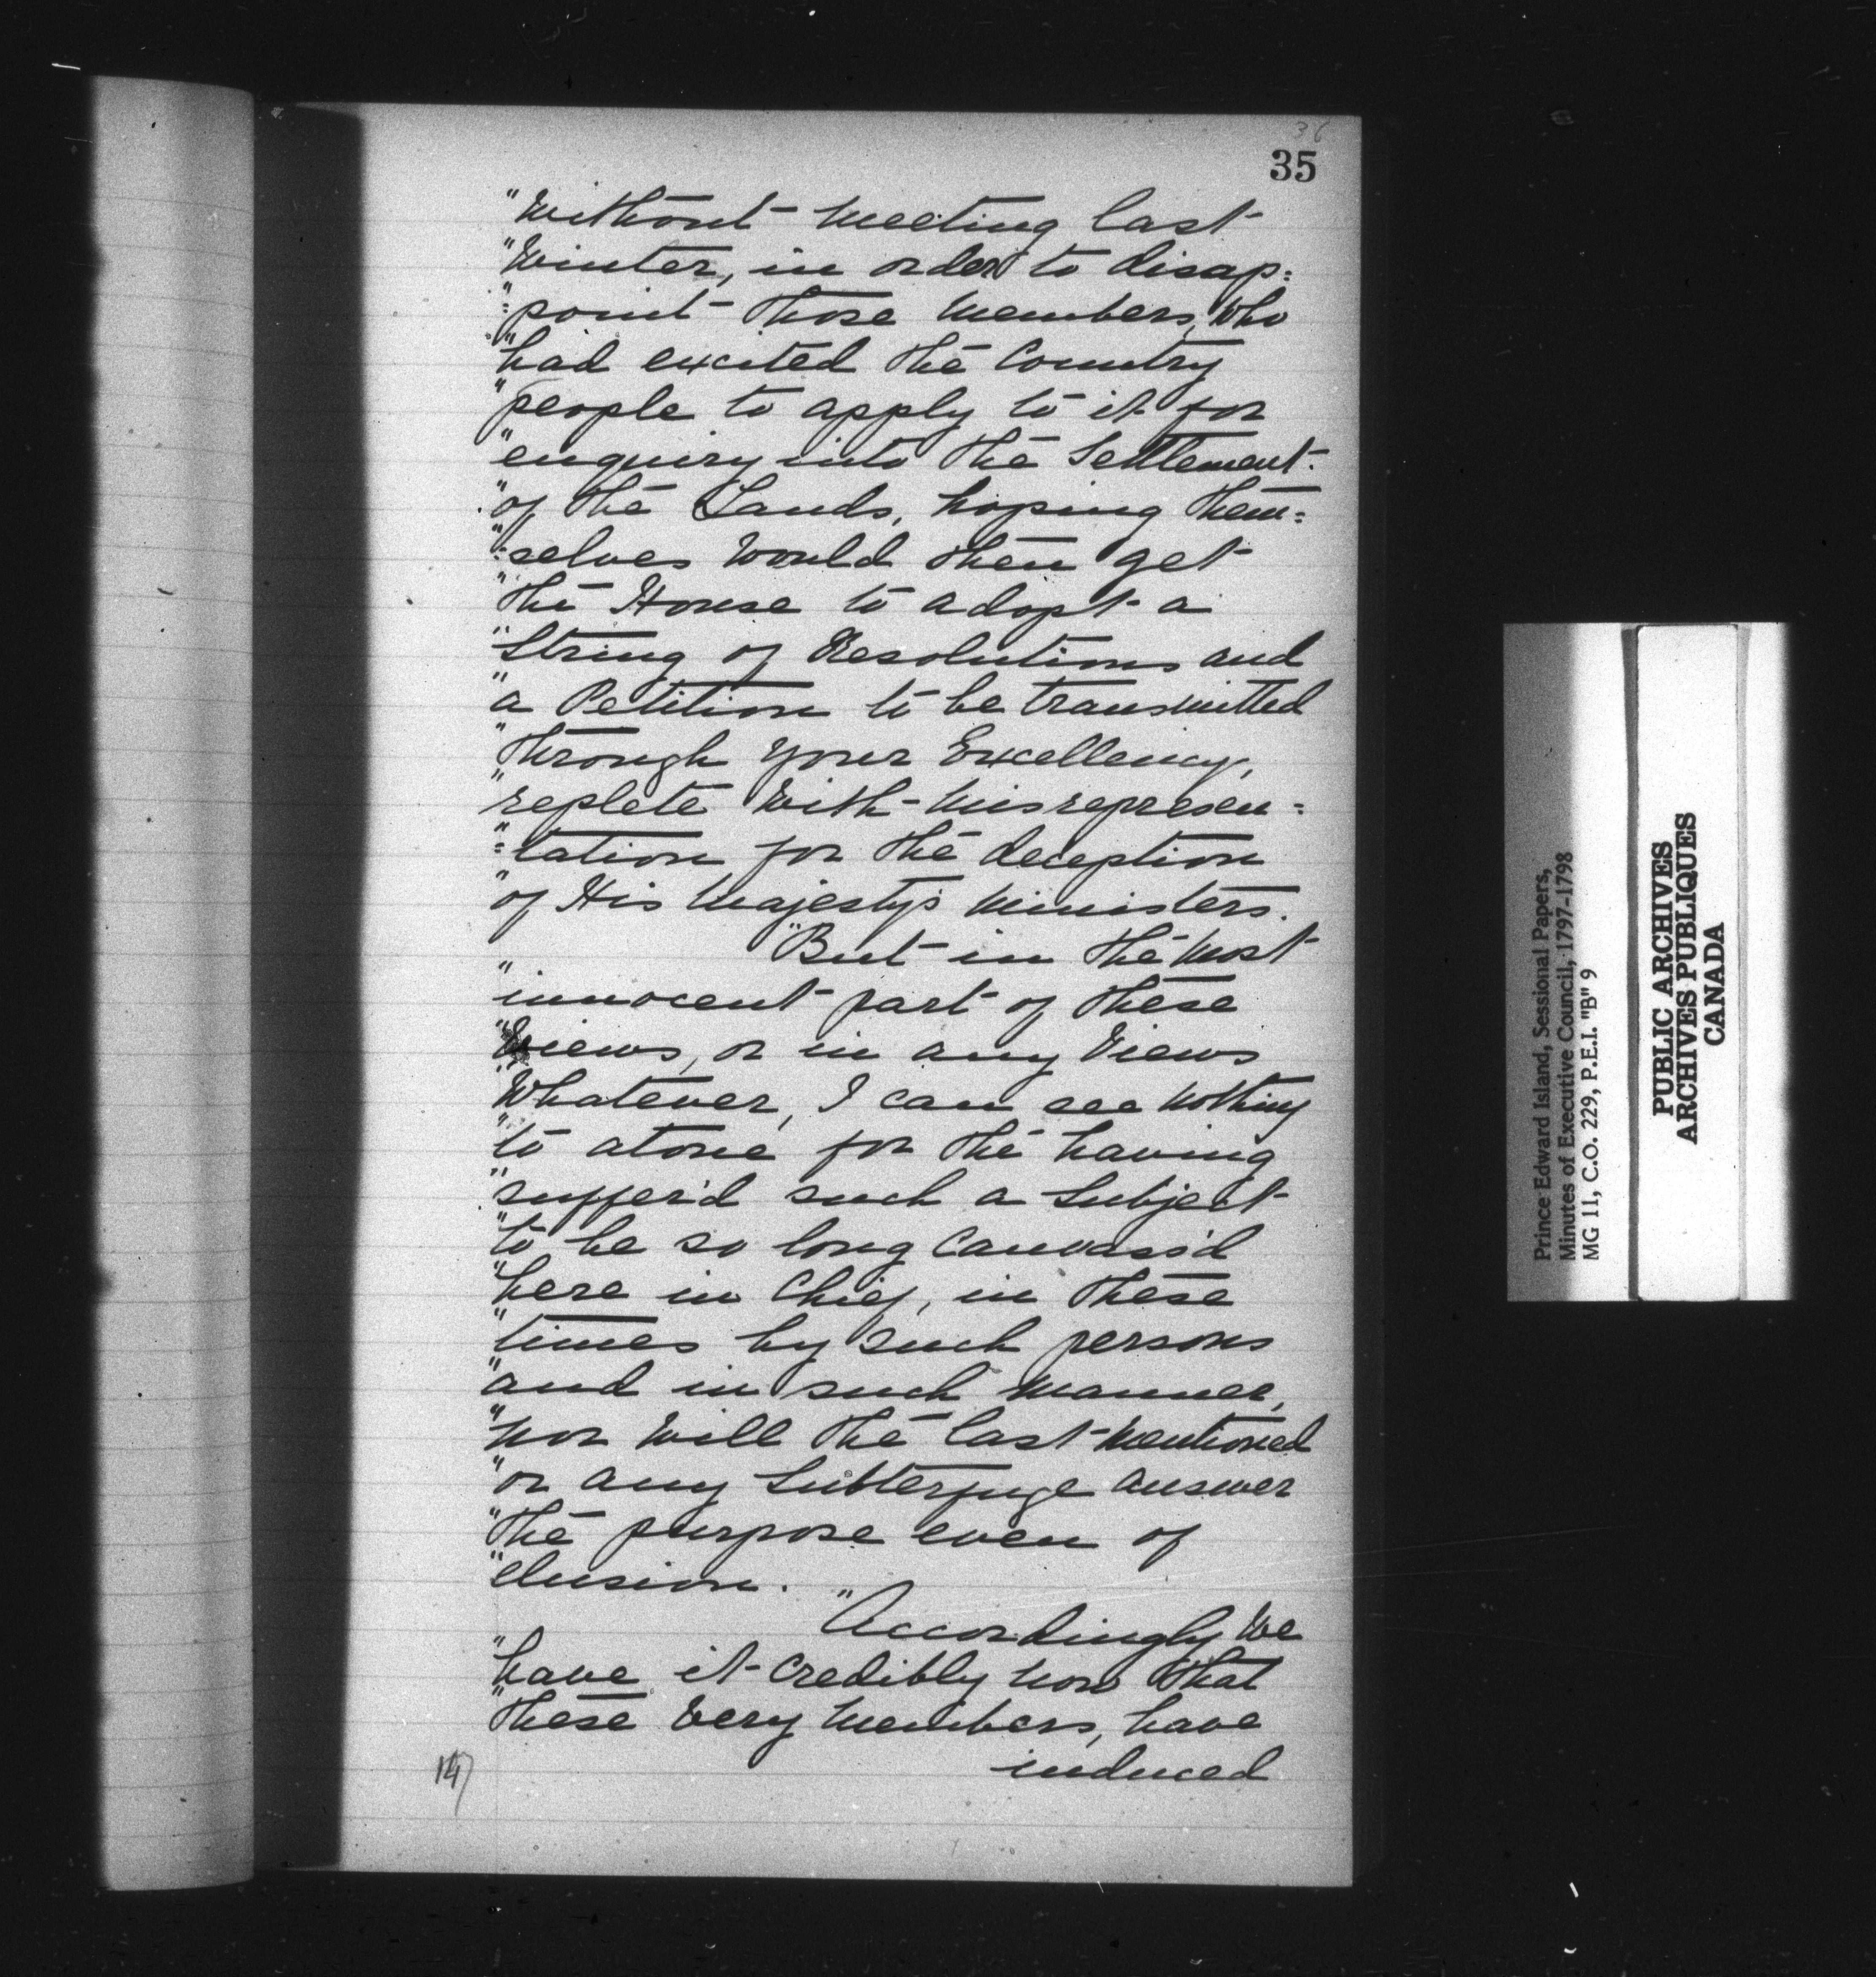 36
35
"Without meeting last
"Winter, in order to disap=
"=point those Members, who
"had excited the Country
"people to apply to it for
"enquiry into the Settlement
"of the Lands, hoping them=
"=selves would then get
"the House to adopt a
"String of Resolutions and
"a Petition to be transmitted
"through your Excellency,
"replete with misrepresen=
"=tation for the deception
"of His Majesty's Ministers.
"But in the most
"innocent part of these
"Views, or in any Views
"Whatever, I can see nothing
"to atone for the having
"suffer'd such a Subject
"to be so long Canvass'd
"here in Chief, in these
"times by such persons
"and in such manner,
"nor will the last mentioned
"or any Subterfuge answer
"the purpose even of
"elusion.
"Accordingly We
"have it credibly now that
"these very Members, have
induced
147
Prince Edward Island, Sessional Papers,
Minutes of Executive Council, 1797-1798
MG 11, C.O. 229, P.E.I. "B" 9
PUBLIC ARCHIVES
ARCHIVES PUBLIQUES
CANADA